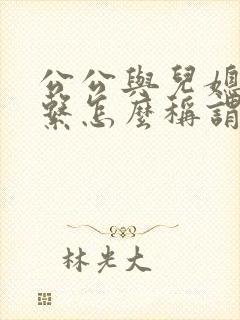 公公與兒媳
繫怎麼稱謂
林光大